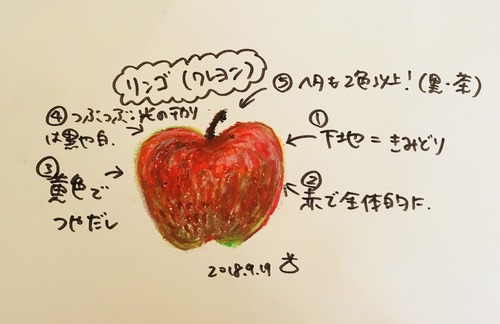 リンゴ(クレヨン)
⑤ヘタも2色以上!(黒・茶)
④つぶつぶ:光のテカリ
は黒や白.
①
下地=きみどり
③
黄色で
つやだし
②
赤で全体的に.
2018.9.19